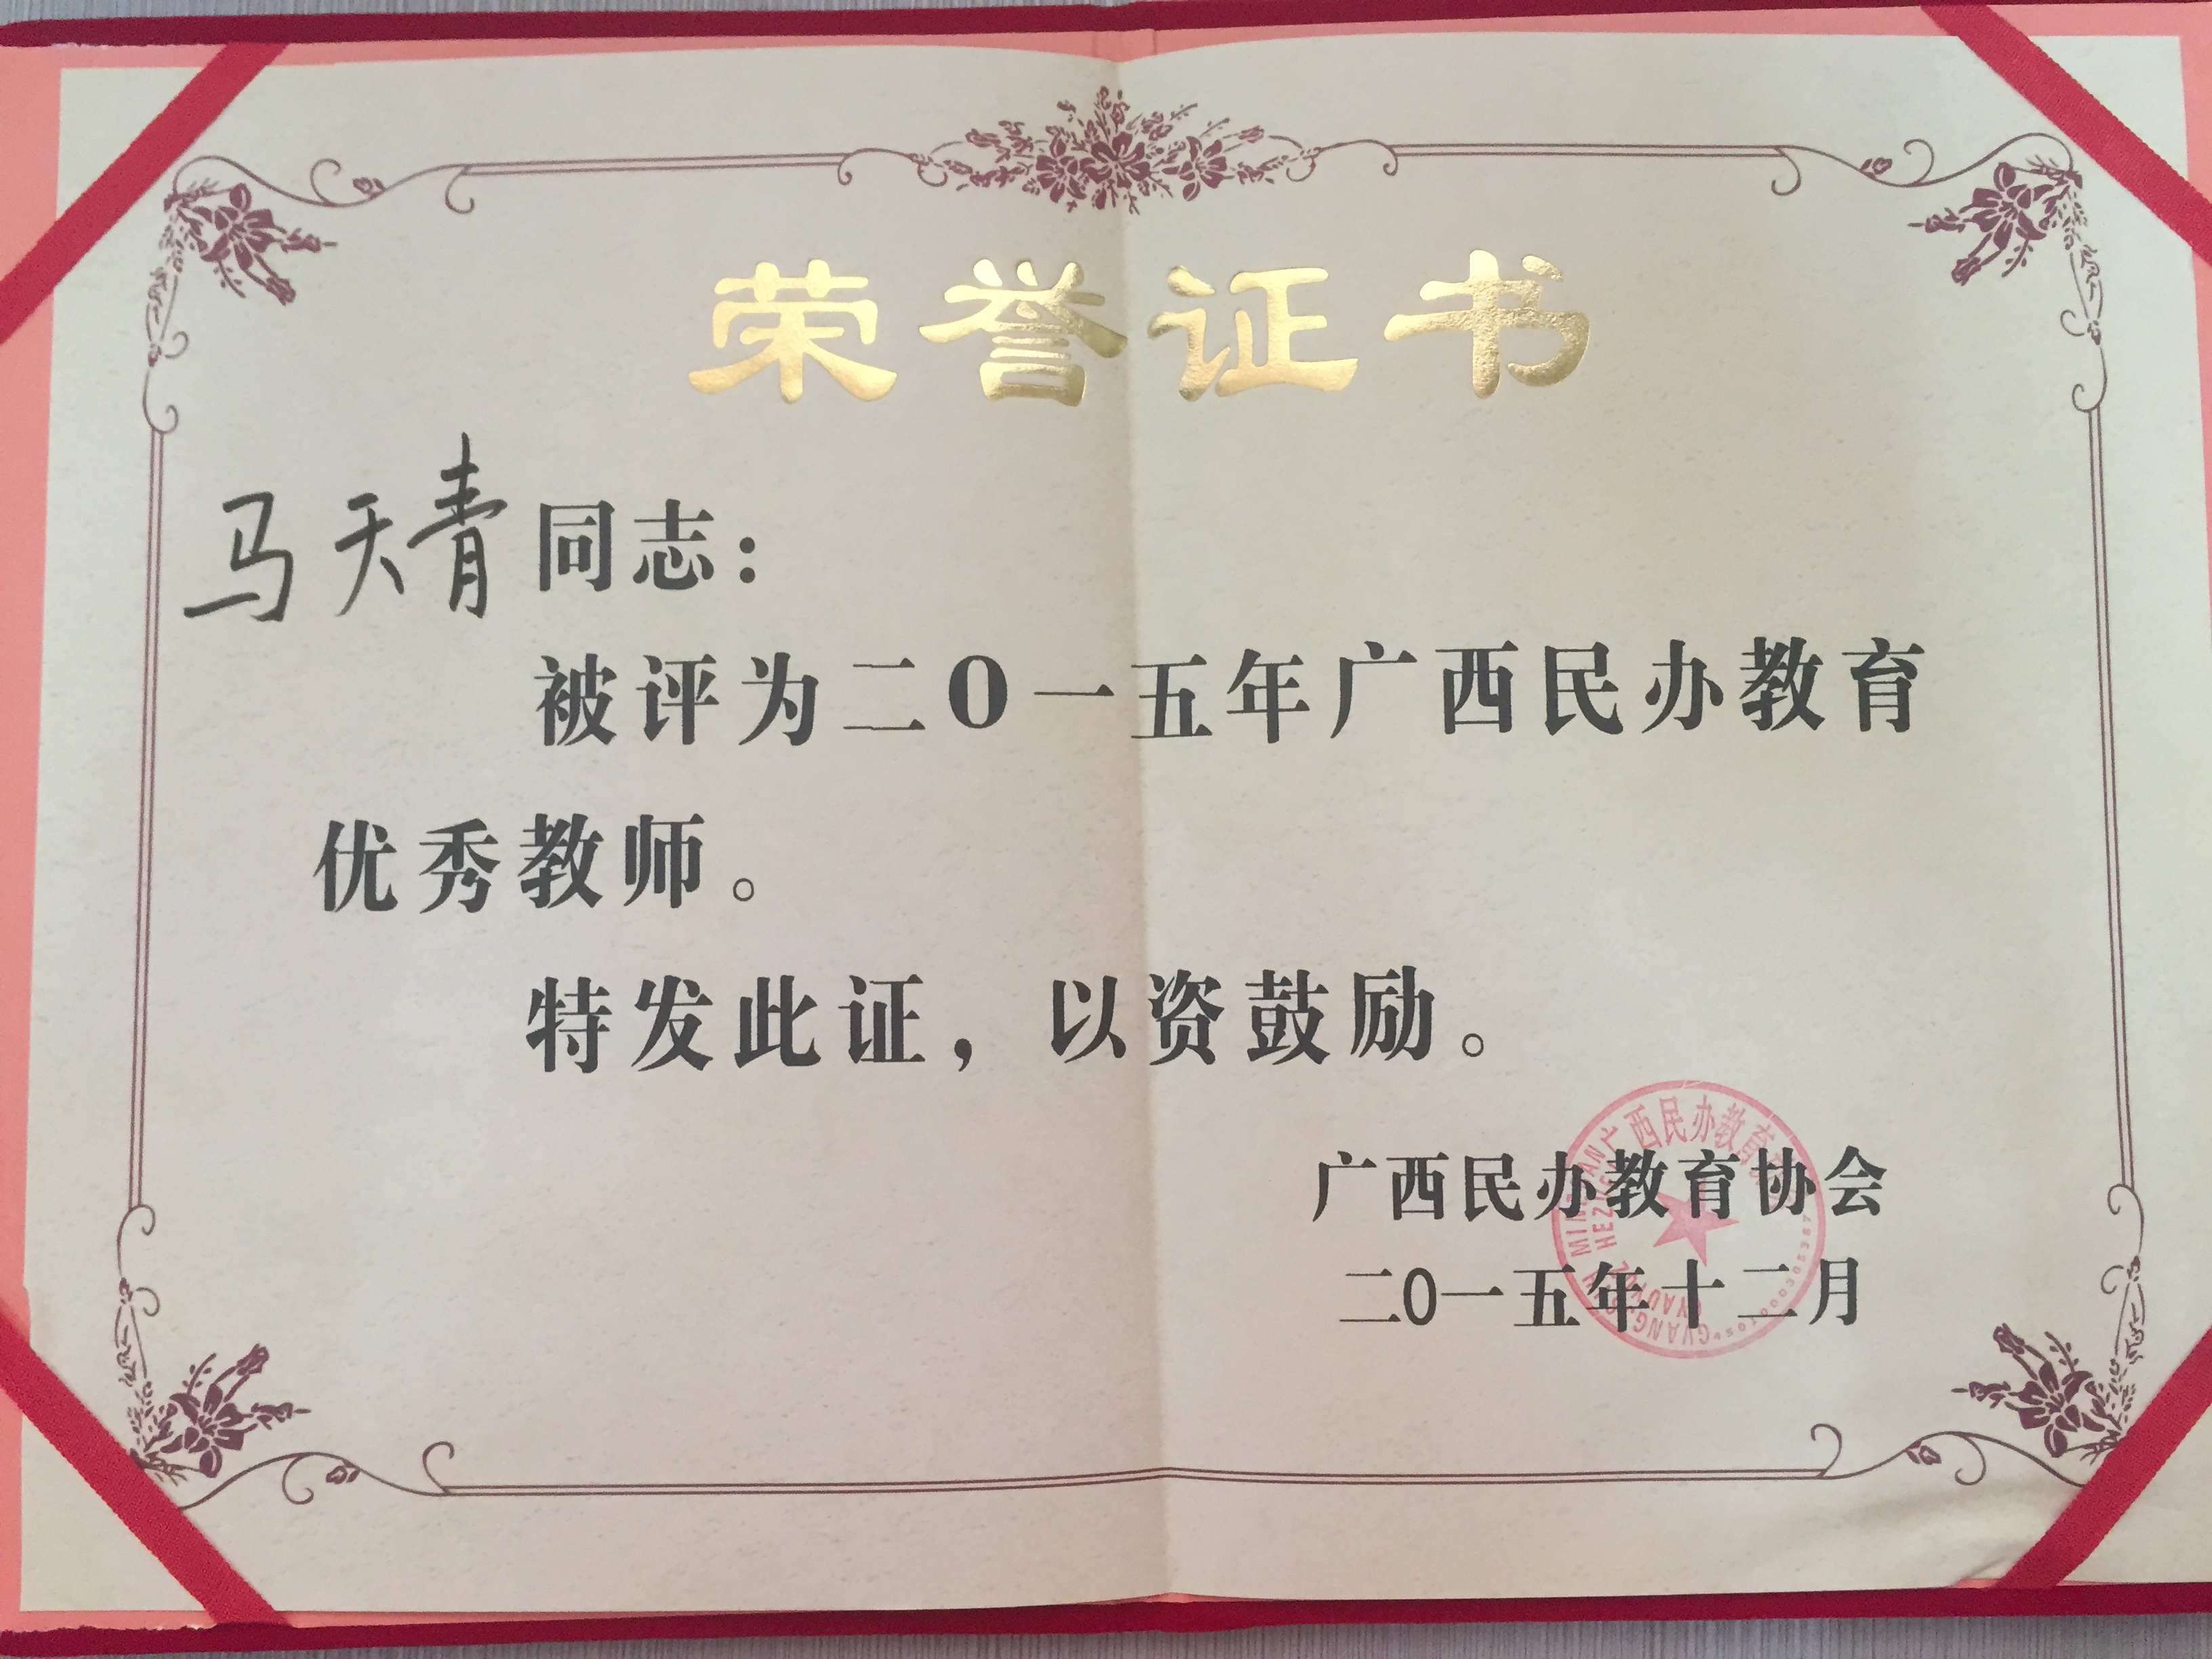 荣誉证书
马天青同志：
被评为二O一五年广西民办教育
优秀教师。
特发此证，以资鼓励。
广西民办教育协会
二O一五年十二月
广西民办教育